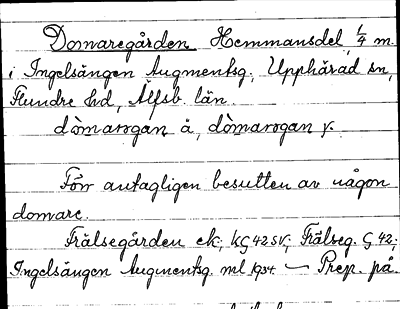 Domaregården Hemmansdel, 1/4 m.
i Ingelsängen Augmentsg., Upphärad sn,
Flundre hd, Älfsb. län.
dòmarogan å, dòmarogan y.
Förr antagligen besutten av någon
domare.
Frälsegården ek., KG 42 SV; Frälseg. G. 42;
Ingelsängen Augmentsg. ml 1934. — Prep. på.